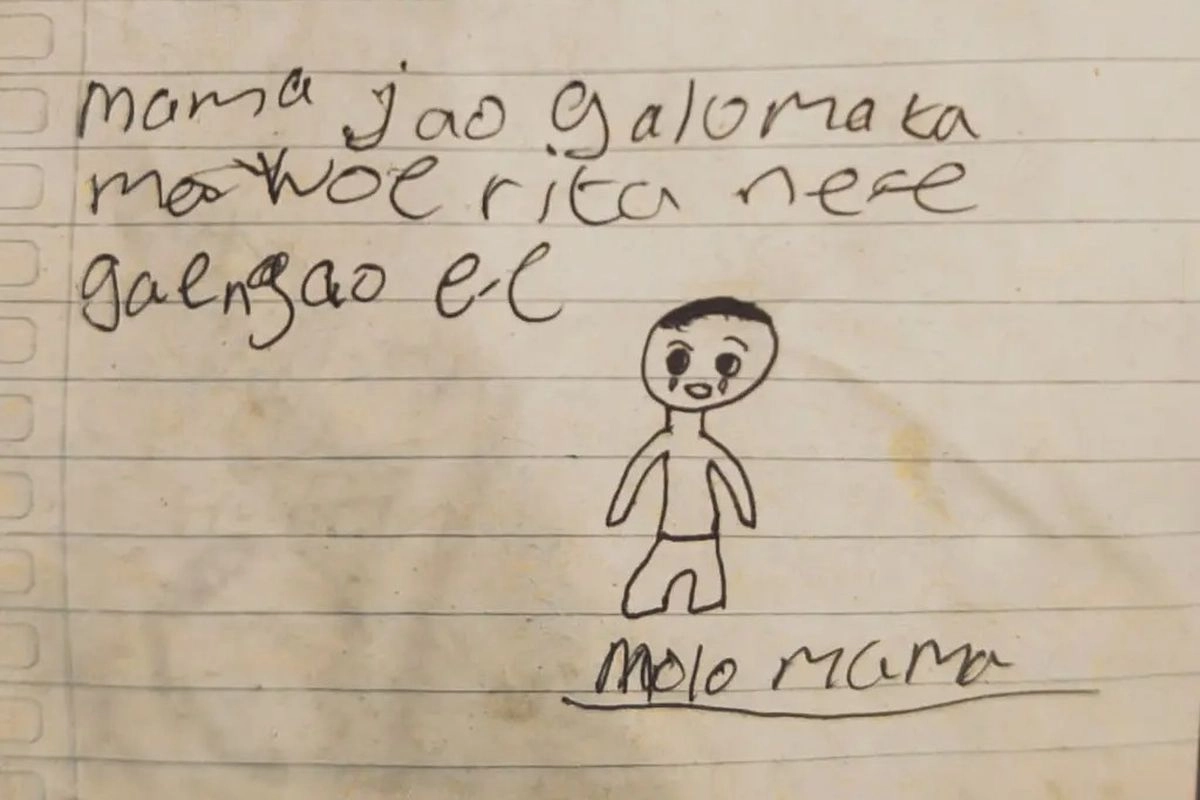 mama jao galo mata
mae woe rita nee
gae ngao ee
molo mama